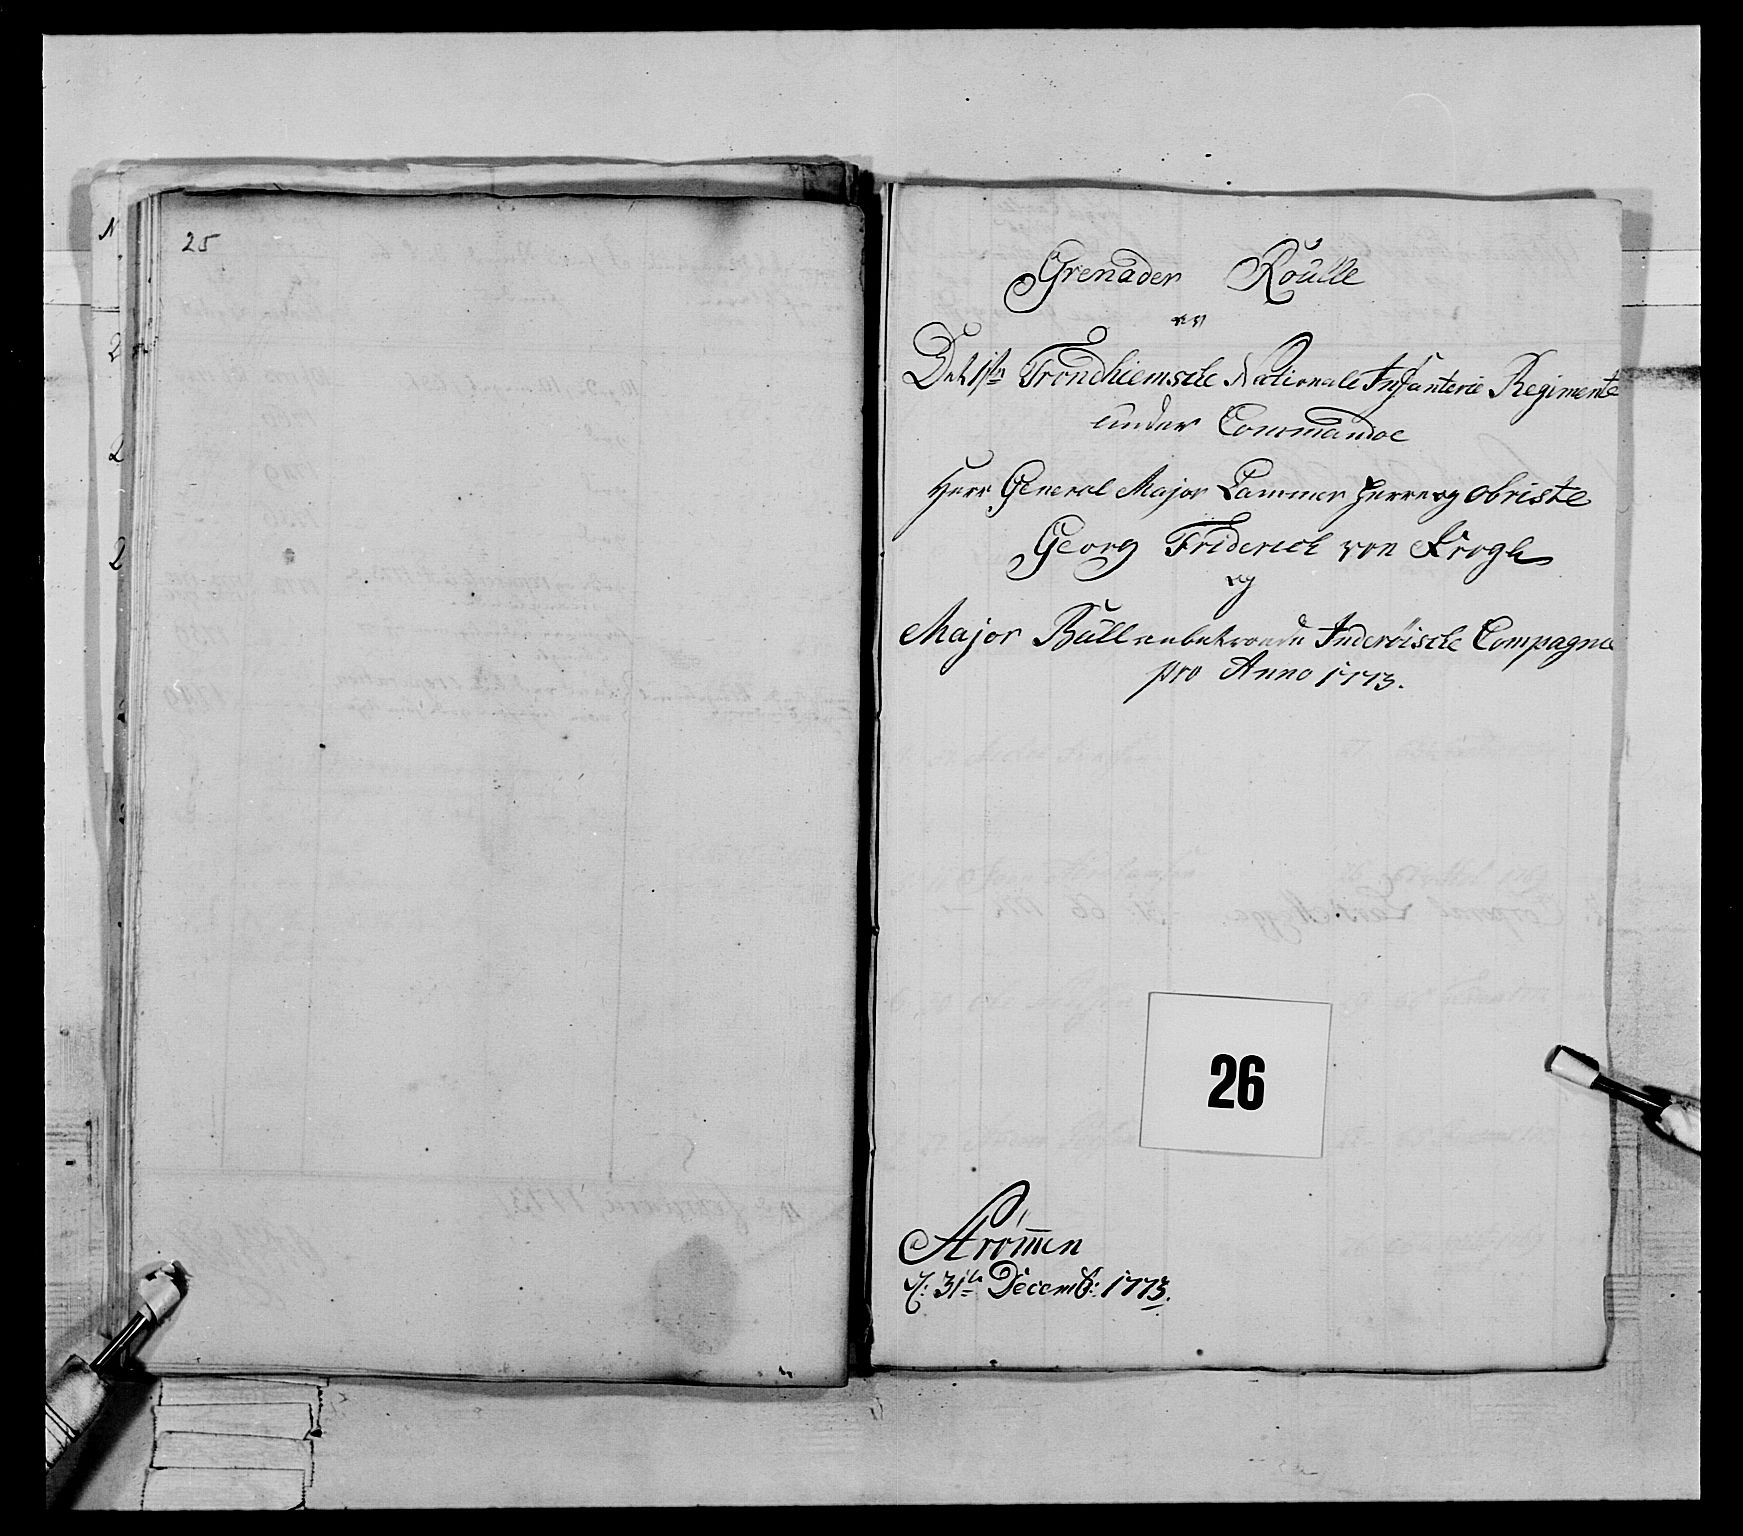 25
Grenader Roulle
af
Det 1ste Trondhiemske Nationale Infanterie Regimente
under Commando
Herr General Major Cammer Herre og Obriste
Georg Friderich von Krogh
og
Major Büll Inderöiske Compagnie
pro Anno 1773.
26
Strömmen
d: 31te Decemb: 1773.